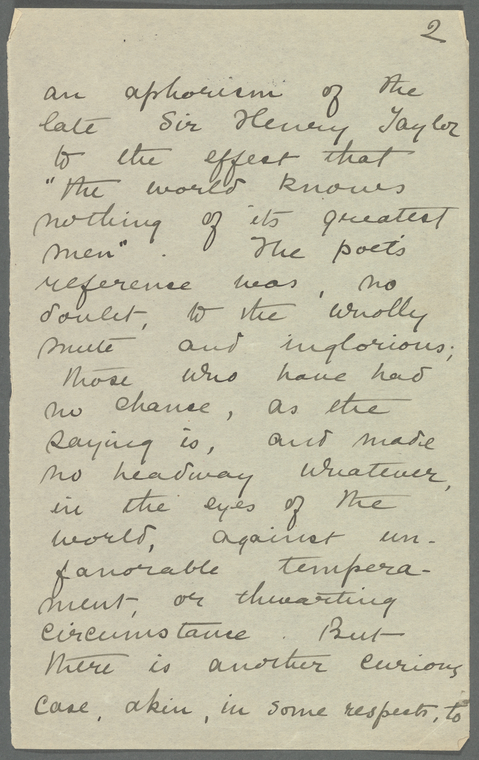 2
an aphorism of the
late Sir Henry Taylor
to the effect that
"the world knows
nothing of its greatest
men". The poet's
reference was, no
doubt, to the wholly
mute and inglorious;
those who have had
no chance, as the
saying is, and made
no headway whatever,
in the eyes of the
world, against un-
favorable tempera-
ment, or thwarting
circumstance. But
there is another curious
case, akin, in some respects, to